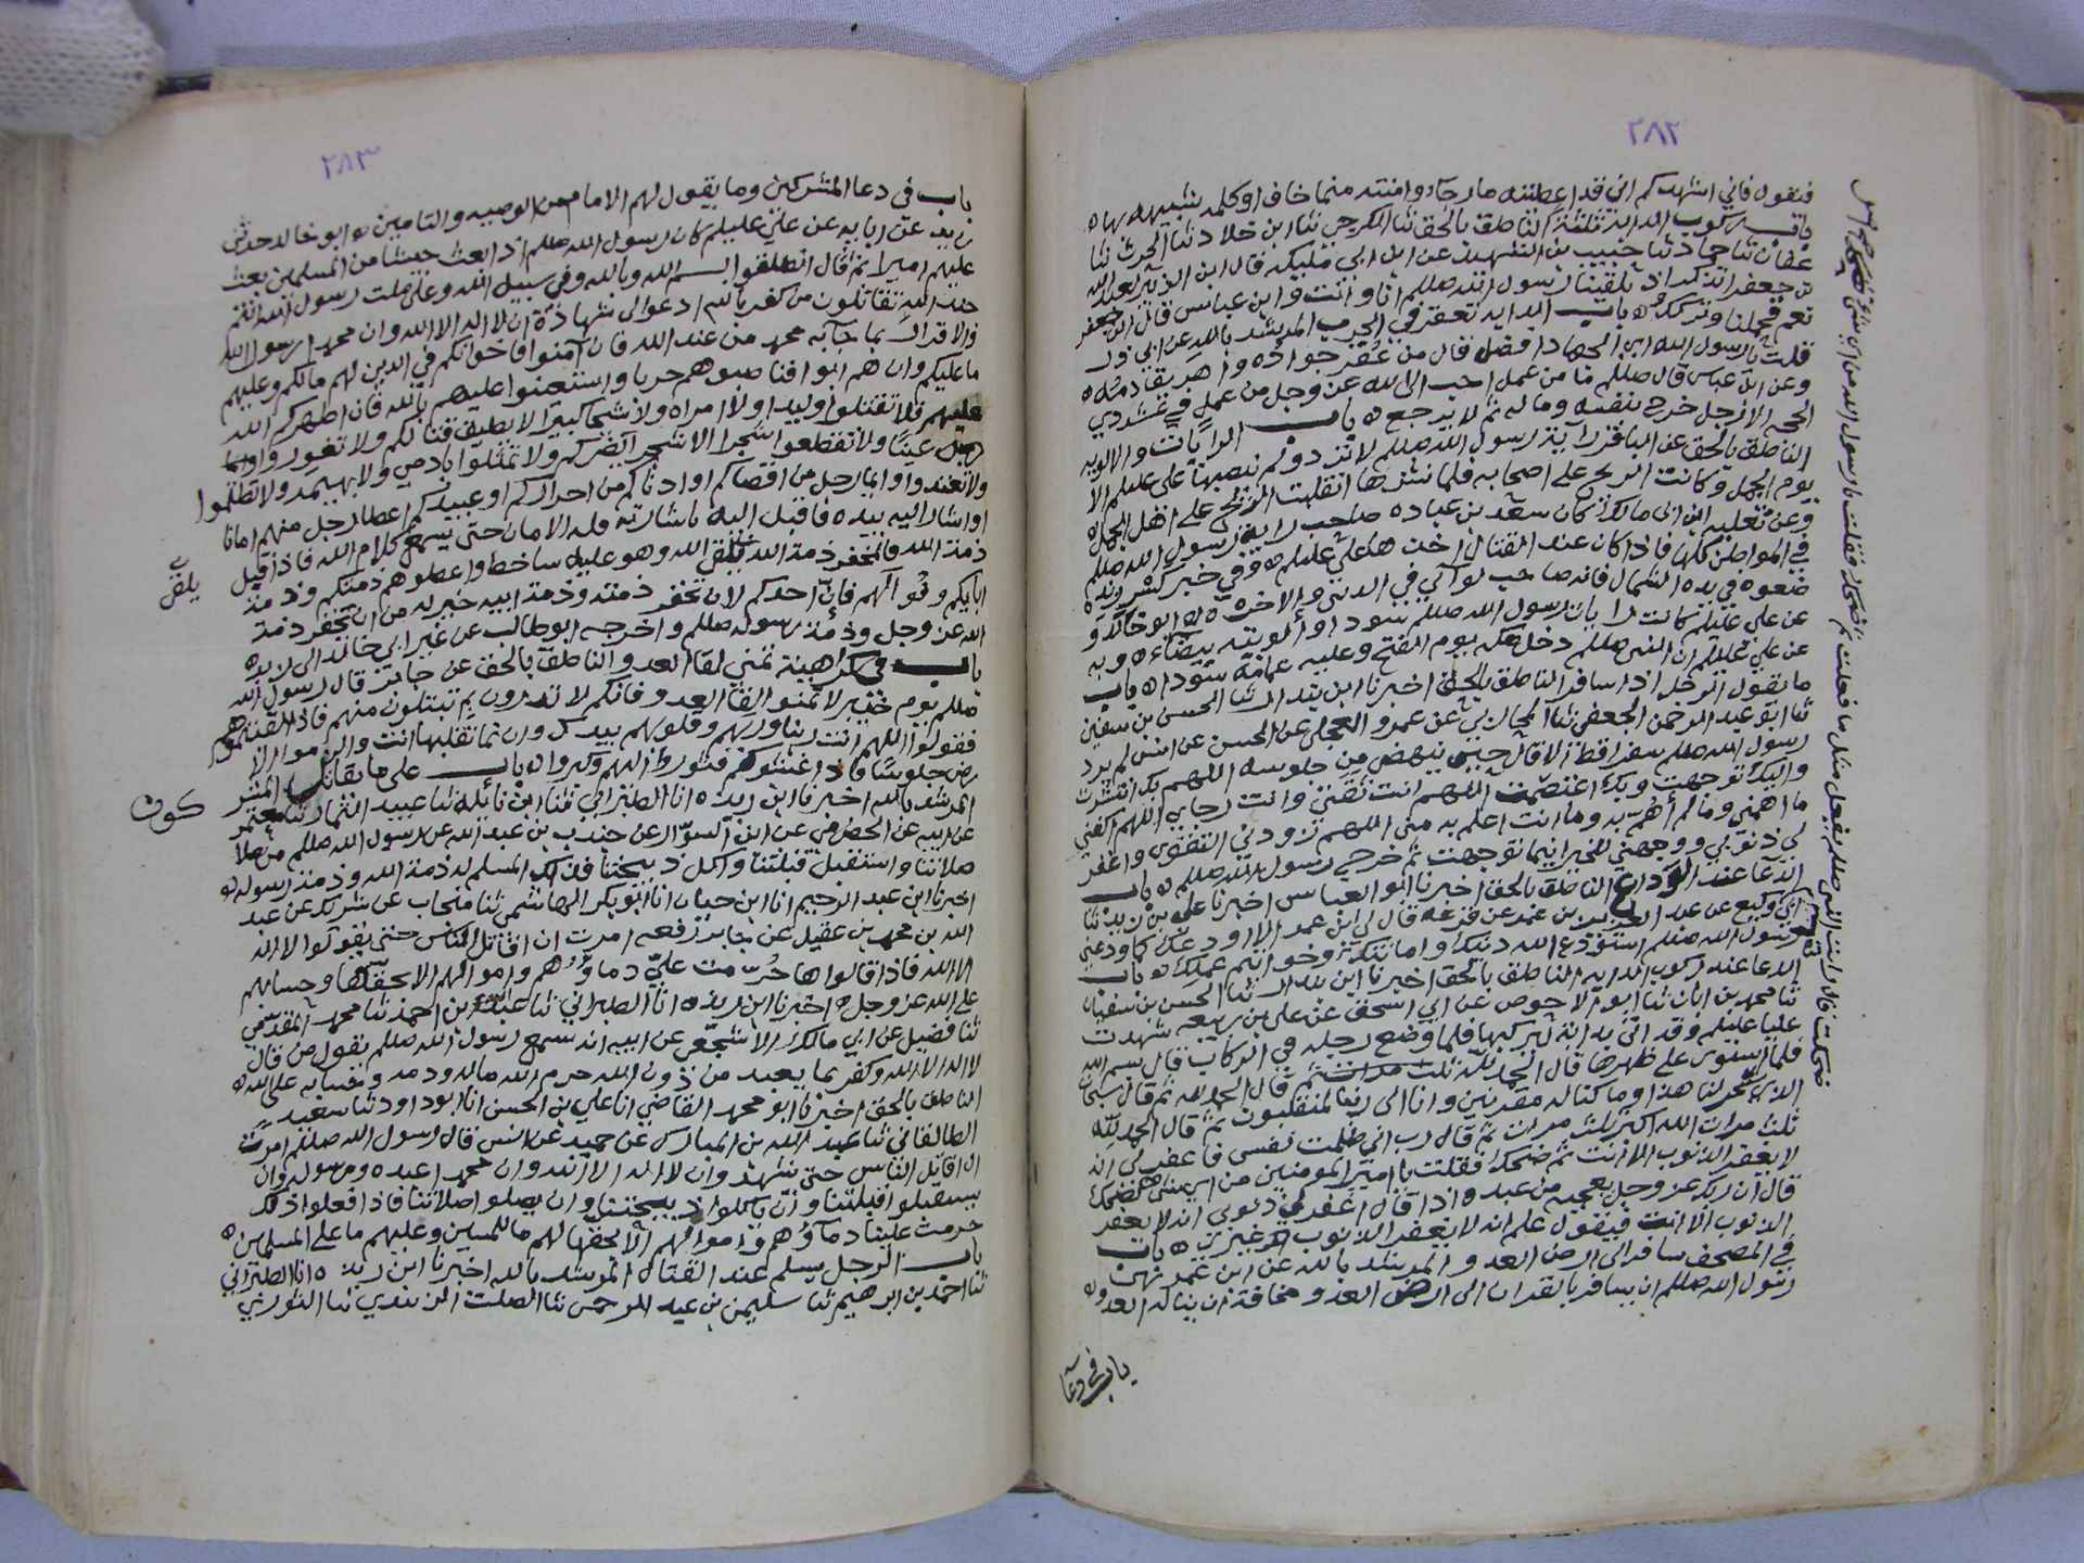 ٢٨٢
فيقول فاني اشهدكم اني قد اعطيته ما رجا وامنته مما خاف او كلمه شبيهه بها ه
باب ركوب الدابة ثلثة الناطق بالحق ثنا الكرجي ثنا ابن خلاد ثنا الحرث ثنا
عفان ثنا حماد ثنا حبيب بن الشهيد عن ابن ابي مليكه قال ابن الزبير لعبد الله
بن جعفر اتذكر اذ تلقينا رسول الله صللم انا وانت وابن عباس قال ابن جعفر
نعم فحملنا وتركك ه باب الدابه تعقر في الحرب المرشد بالله عن ابي ذر
قلت يا رسول الله اي الجهاد افضل قال من عقر جواده واهريق دمه ه
وعن ابن عباس قال صللم ما من عمل احب الى الله عز وجل من عمل في عشر ذي
الحجه الا رجل خرج بنفسه وماله ثم لا يرجع ه باب الرايات والالويه
الناطق بالحق عن الباقر راية رسول الله صللم لا ترد ولم ينصبها علي عليلم الا
يوم الجمل وكانت الريح على اصحابه فلما نشرها انقلبت الريح على اهل الجمل ه
وعن ثعلبه ابن ابي مالك كان سعد بن عباده صاحب راية رسول الله صللم
في المواطن كلها فاذا كان عند القتال اخذها علي عليلم ه وفي خبر كسر زنده
ضعوه في يده الشمال فانه صاحب لوآئي في الدنيى والاخره ه ابو خالد و
عن علي عليلم كانت رايات رسول الله صللم سودا وألويته بيضاء ه وبه
عن علي عليلم ان النبي صللم دخل مكه يوم الفتح وعليه عمامة سودا ه باب
ما يقول الرجل اذا سافر الناطق بالحق اخبرنا ابن بندار ثنا الحسن بن سفين
ثنا ابو عبد الرحمن الجعفي ثنا المحاربي عن عمرو العجلي عن الحسن عن انس لم يرد
رسول الله صللم سفرا قط الا قال حين ينهض من جلوسه اللهم بك انتشرت
واليك توجهت وبك اعتصمت اللهم انت ثقتي وانت رجاي اللهم اكفني
ما اهمني وما لم أهتم به وما انت اعلم به مني اللهم زودني التقوى واغفر
لي ذنوبي ووجهني للخير اينما توجهت ثم خرج رسول الله صللم ه باب
الدعآ عند الوداع الناطق بالحق اخبرنا ابو العباس اخبرنا علي بن يزيد ثنا
ابي وكيع عن عبد العزيز بن عمر عن قزعه قال لي ابن عمر الا اودعك كما ودعني
رسول الله صللم استودع الله دينك وامانتك وخواتم عملك ه باب
الدعا عند ركوب الدابه الناطق بالحق اخبرنا ابن بندار ثنا الحسن بن سفيان
ثنا محمد بن ابان ثنا ابو الاحوص عن ابي اسحق عن علي بن ربيعه شهدت
عليا عليلم وقد اتى بدابة ليركبها فلما وضع رجله في الركاب قال بسم الله
فلما استوى على ظهرها قال الحمد لله ثلث مرات ثم قال الحمد لله ثم قال سبحان
الذي سخر لنا هذا وما كنا له مقرنين وانا الى ربنا لمنقلبون ثم قال الحمد لله
ثلث مرات الله اكبر ثلث مرات ثم قال رب اني ظلمت نفسي فاغفر لي انه
لا يغفر الذنوب الا انت ثم ضحك فقلت يا امير المومنين من اي شي ضحكت
قال ان ربك عز وجل يعجب من عبده اذا قال اغفر لي ذنوبي انه لا يغفر
الذنوب الا انت فيقول علم انه لا يغفر الذنوب غيري ه باب
في المصحف سافر الى ارض العدو المرشد بالله عن ابن عمر نهى
رسول الله صللم ان يسافر بالقران الى ارض العدو مخافة ان يناله العدو ه
باب في دعآ
ضحكت قال رايت النبي صللم يفعل مثل ما فعلت ثم ضحك فقلت يا رسول الله من اي شي ضحكت
٢٨٣
باب في دعا المشركين وما يقول لهم الامام من الوصيه والتامين ه ابو خالد حدثني
زيد عن ابايه عن علي عليلم كان رسول الله صللم اذا بعث جيشا من المسلمين بعث
عليهم اميرا ثم قال انطلقوا بسم الله وبالله وفي سبيل الله وعلى ملت رسول الله انتم
جند الله تقاتلون من كفر بالله ادعوا الى شهادة ان لا اله الا الله وان محمدا رسول الله
والاقرار بما جآبه محمد من عند الله فان آمنوا فاخوانكم في الدين لهم ما لكم وعليهم
ما عليكم وان هم ابوا فناصبوهم حربا واستعينوا عليهم بالله فان اظهركم الله
عليهم فلا تقتلوا وليدا ولا امراه ولا شيخا كبيرا لا يطيق قتالكم ولا تغوروا
عينا ولا تقطعوا شجرا الا شجر ايضركم ولا تمثلوا بادمي ولا بهيمه ولا تظلموا
ولا تعتدوا وايما رجل من اقصاكم او ادناكم من احراركم او عبيدكم اعطا رجل منهم امانا
او اشار اليه بيده فاقبل اليه باشارته فله الامان حتى يسمع كلام الله فاذا قبل
ذمة الله فالمخفر ذمة الله يلقى الله وهو عليه ساخط واعطوهم ذمتكم وذمة
ابايكم وفوا لهم فان احدكم لان تخفر ذمته وذمة ابيه خير له من ان تخفر ذمة
الله عز وجل وذمة رسوله صللم واخرجه ابو طالب عن غير ابي خالد الى لابوه
باب في كراهية تمني لقا العدو الناطق بالحق عن جابر قال رسول الله
صللم يوم خيبر لا تمنوا لقا العدو فانكم لا تدرون بم تبتلون منهم فاذا لقيتموهم
فقولوا اللهم انت ربنا وربهم وقلوبهم بيدك وانما تقلبها انت والزموا الا
رض جلوسا فاذا غشوكم فثوروا اليهم وكبروا ه باب على ما يقاتل المشر
كون
المرشد بالله اخبرنا ابن ريذه انا الطبراني ثنا ابن نائله ثنا عبيد التمار ثنا معتمر
عن ابيه عن الحضرمي عن ابي السوار عن جندب بن عبد الله عن رسول الله صللم من صلا
صلاتنا واستقبل قبلتنا واكل ذبيحتنا فذلك المسلم له ذمة الله وذمة رسوله ه
اخبرنا ابن عبد الرحيم انا ابن حيان انا ابو بكر الهاشمي ثنا منجاب عن شريك عن عبد
الله بن محمد بن عقيل عن جابر رفعه امرت ان اقاتل الناس حتى يقولوا لا اله
الا الله فاذا قالوها حرمت علي دماؤهم واموالهم الا بحقها وحسابهم
على الله عز وجل ه اخبرنا ابن ريذه انا الطبراني ثنا عبد الله بن احمد ثنا محمد المقدمي
ثنا فضيل عن ابي مالك الاشجعي عن ابيه انه سمع رسول الله صللم يقول من قال
لا اله الا الله وكفر بما يعبد من دون الله حرم الله ماله ودمه وحسابه على الله ه
الناطق بالحق اخبرنا ابو محمد القاضي انا علي بن الحسن انا ابو داود ثنا سعيد
الطالقاني ثنا عبد الله بن المبارك عن حميد عن انس قال رسول الله صللم امرت
ان اقاتل الناس حتى يشهدوان لا اله الا الله وان محمدا عبده ورسوله وان
يستقبلوا قبلتنا وان ياكلوا ذبيحتنا وان يصلوا صلاتنا فاذا فعلوا ذلك
حرمت علينا دماؤهم واموالهم الا بحقها لهم ما للمسلمين وعليهم ما على المسلمين ه
باب الرجل يسلم عند القتال المرشد بالله اخبرنا ابن ريذه انا الطبراني
ثنا احمد بن ابرهيم ثنا سليمن بن عبد الرحمن ثنا الصلت الزبيدي ثنا الثوري
يلقى